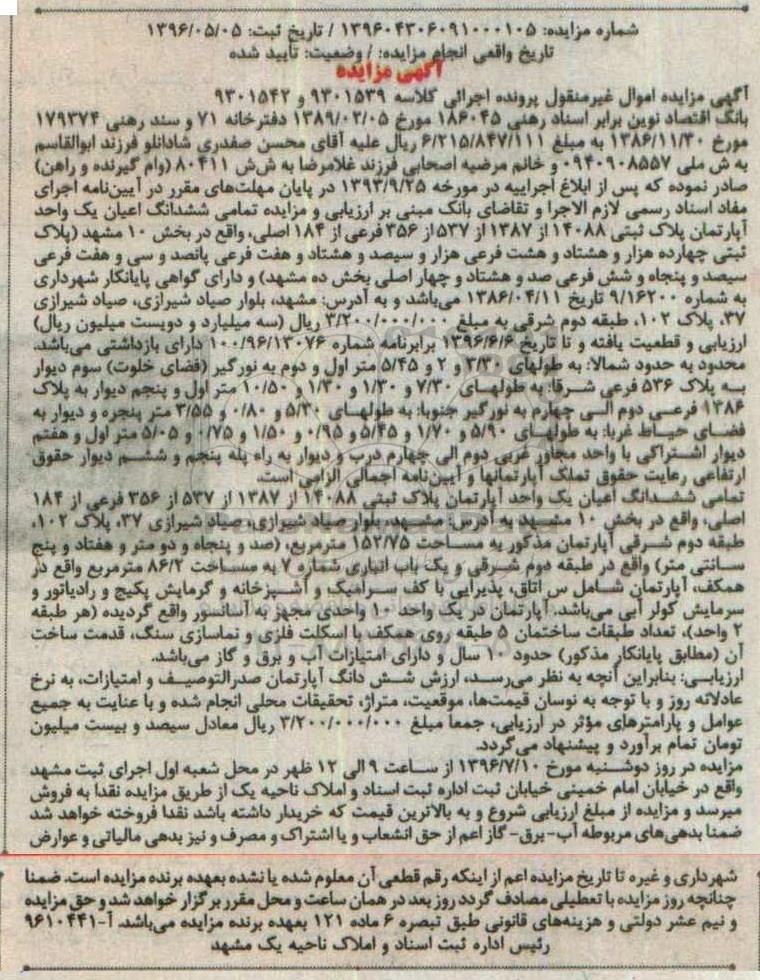 شماره مزایده: ۱۳۹۶۰۴۳۰۶۰۹۱۰۰۰۱۰۵ / تاریخ ثبت: ۱۳۹۶/۰۵/۰۵
تاریخ واقعی انجام مزایده: / وضعیت: تأیید شده
آگهی مزایده
آگهی مزایده اموال غیرمنقول پرونده اجرائی کلاسه ۹۳۰۱۵۳۹ و ۹۳۰۱۵۴۲
بانک اقتصاد نوین برابر اسناد رهنی ۱۸۶۰۴۵ مورخ ۱۳۸۹/۰۳/۰۵ دفترخانه ۷۱ و سند رهنی ۱۷۹۳۷۴
مورخ ۱۳۸۶/۱۱/۳۰ به مبلغ ۶/۲۱۵/۸۴۷/۱۱۱ ریال علیه آقای محسن صفدری شادانلو فرزند ابوالقاسم
به ش ملی ۰۹۴۰۹۰۸۵۵۷ و خانم مرضیه اصحابی فرزند غلامرضا به ش‌ش ۸۰۴۱۱ (وام گیرنده و راهن)
صادر نموده که پس از ابلاغ اجراییه در مورخه ۱۳۹۳/۹/۲۵ در پایان مهلت‌های مقرر در آیین‌نامه اجرای
مفاد اسناد رسمی لازم الاجرا و تقاضای بانک مبنی بر ارزیابی و مزایده تمامی ششدانگ اعیان یک واحد
آپارتمان پلاک ثبتی ۱۴۰۸۸ از ۱۳۸۷ از ۵۳۷ از ۳۵۶ فرعی از ۱۸۴ اصلی، واقع در بخش ۱۰ مشهد (پلاک
ثبتی چهارده هزار و هشتاد و هشت فرعی هزار و سیصد و هشتاد و هفت فرعی پانصد و سی و هفت فرعی
سیصد و پنجاه و شش فرعی صد و هشتاد و چهار اصلی بخش ده مشهد) و دارای گواهی پایانکار شهرداری
به شماره ۹/۱۶۲۰۰ تاریخ ۱۳۸۶/۰۴/۱۱ می‌باشد و به آدرس: مشهد، بلوار صیاد شیرازی، صیاد شیرازی
۳۷، پلاک ۱۰۲، طبقه دوم شرقی به مبلغ ۳/۲۰۰/۰۰۰/۰۰۰ ریال (سه میلیارد و دویست میلیون ریال)
ارزیابی و قطعیت یافته و تا تاریخ ۱۳۹۶/۶/۶ برابرنامه شماره ۱۰۰/۹۶/۱۳۰۷۶ دارای بازداشتی می‌باشد.
محدود به حدود شمالا: به طولهای ۳/۳۰ و ۲ و ۵/۴۵ متر اول و دوم به نورگیر (فضای خلوت) سوم دیوار
به پلاک ۵۳۶ فرعی شرقا: به طولهای ۷/۳۰ و ۱/۳۰ و ۱/۳۰ و ۱۰/۵۰ متر اول و پنجم دیوار به پلاک
۱۳۸۶ فرعی دوم الی چهارم به نورگیر جنوبا: به طولهای ۵/۳۰ و ۰/۸۰ و ۳/۵۵ متر پنجره و دیوار به
فضای حیاط غربا: به طولهای ۵/۹۰ و ۱/۷۰ و ۵/۴۵ و ۰/۹۵ و ۱/۵۰ و ۰/۷۵ و ۵/۰۵ متر اول و هفتم
دیوار اشتراکی با واحد مجاور غربی دوم الی چهارم درب و دیوار به راه پله پنجم و ششم دیوار حقوق
ارتفاعی رعایت حقوق تملک آپارتمانها و آیین‌نامه اجمالی الزامی است.
تمامی ششدانگ اعیان یک واحد آپارتمان پلاک ثبتی ۱۴۰۸۸ از ۱۳۸۷ از ۵۳۷ از ۳۵۶ فرعی از ۱۸۴
اصلی، واقع در بخش ۱۰ مشهد به آدرس: مشهد، بلوار صیاد شیرازی، صیاد شیرازی ۳۷، پلاک ۱۰۲،
طبقه دوم شرقی آپارتمان مذکور به مساحت ۱۵۲/۷۵ مترمربع، (صد و پنجاه و دو متر و هفتاد و پنج
سانتی متر) واقع در طبقه دوم شرقی و یک باب انباری شماره ۷ به مساحت ۸۶/۲ مترمربع واقع در
همکف، آپارتمان شامل س اتاق، پذیرایی با کف سرامیک و آشپزخانه و گرمایش پکیج و رادیاتور و
سرمایش کولر آبی می‌باشد. آپارتمان در یک واحد ۱۰ واحدی مجهز به آسانسور واقع گردیده (هر طبقه
۲ واحد)، تعداد طبقات ساختمان ۵ طبقه روی همکف با اسکلت فلزی و نماسازی سنگ، قدمت ساخت
آن (مطابق پایانکار مذکور) حدود ۱۰ سال و دارای امتیازات آب و برق و گاز می‌باشد.
ارزیابی: بنابراین آنچه به نظر می‌رسد، ارزش شش دانگ آپارتمان صدرالتوصیف و امتیازات، به نرخ
عادلانه روز و با توجه به نوسان قیمت‌ها، موقعیت، متراژ، تحقیقات محلی انجام شده و با عنایت به جمیع
عوامل و پارامترهای مؤثر در ارزیابی، جمعا مبلغ ۳/۲۰۰/۰۰۰/۰۰۰ ریال معادل سیصد و بیست میلیون
تومان تمام برآورد و پیشنهاد می‌گردد.
مزایده در روز دوشنبه مورخ ۱۳۹۶/۷/۱۰ از ساعت ۹ الی ۱۲ ظهر در محل شعبه اول اجرای ثبت مشهد
واقع در خیابان امام خمینی خیابان ثبت اداره ثبت اسناد و املاک ناحیه یک از طریق مزایده نقدا به فروش
میرسد و مزایده از مبلغ ارزیابی شروع و به بالاترین قیمت که خریدار داشته باشد نقدا فروخته خواهد شد
ضمنا بدهی‌های مربوطه آب-برق-گاز اعم از حق انشعاب و یا اشتراک و مصرف و نیز بدهی مالیاتی و عوارض
شهرداری و غیره تا تاریخ مزایده اعم از اینکه رقم قطعی آن معلوم شده یا نشده بعهده برنده مزایده است. ضمنا
چنانچه روز مزایده با تعطیلی مصادف گردد روز بعد در همان ساعت و محل مقرر برگزار خواهد شد و حق مزایده
و نیم عشر دولتی و هزینه‌های قانونی طبق تبصره ۶ ماده ۱۲۱ بعهده برنده مزایده می‌باشد. آ-۹۶۱۰۴۴۱
رئیس اداره ثبت اسناد و املاک ناحیه یک مشهد